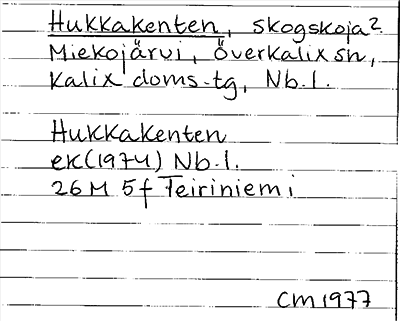 Hukkakenten, skogskoja?
Miekojärvi, Överkalix sn,
Kalix doms.tg, Nb.l.
Hukkakenten
ek(1974) Nb.l.
26M 5f Teiriniemi
CM1977